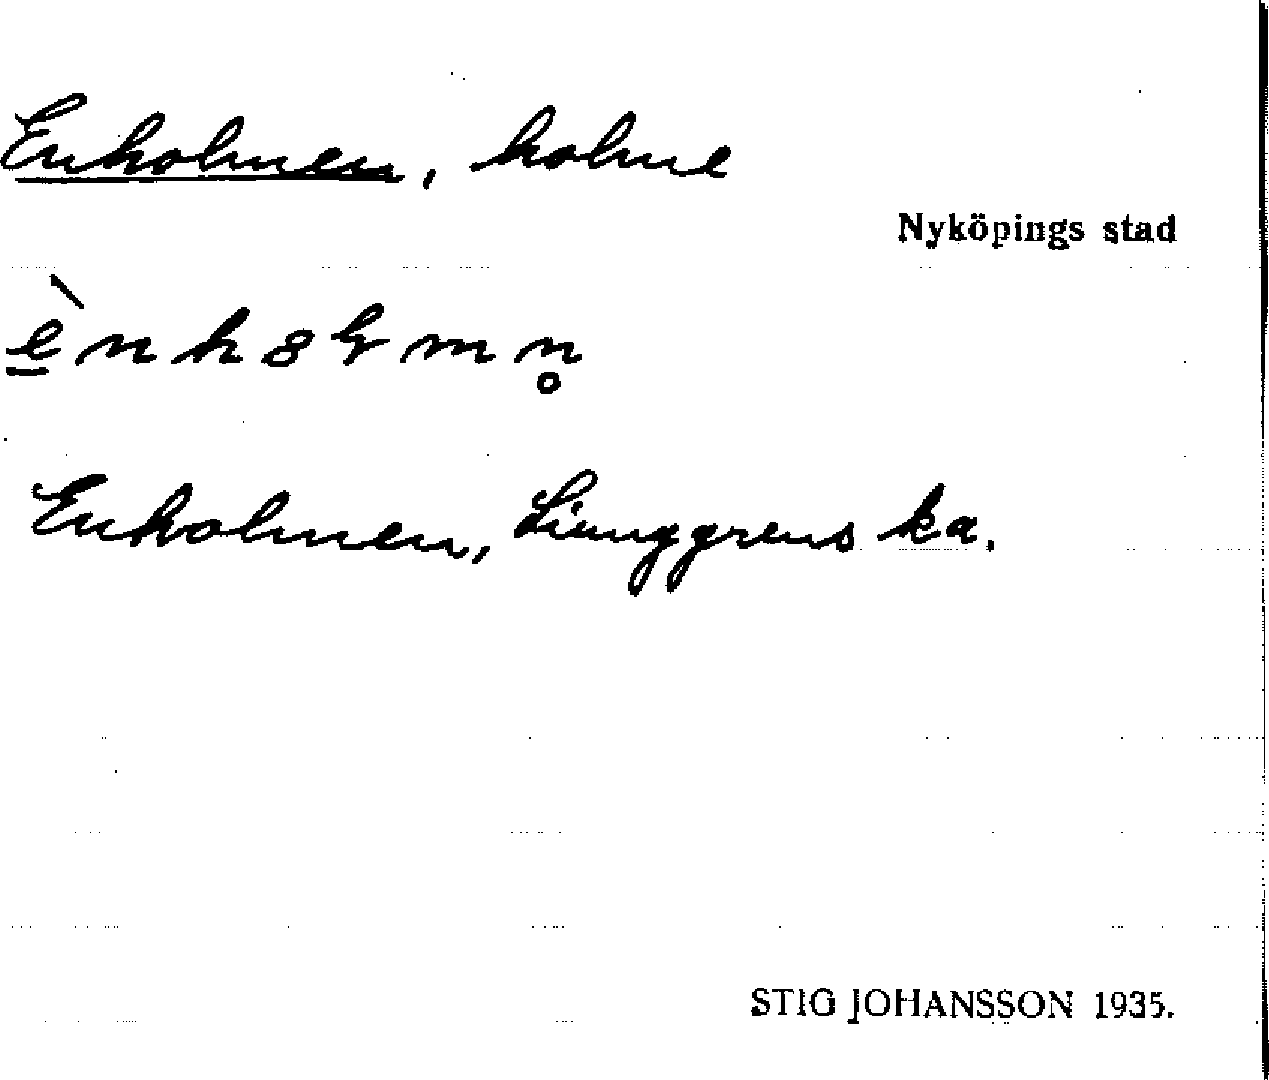 Enholmen, holme
Nyköpings stad
Enholmen, Liunggrens ka.
STIG JOHANSSON 1935.